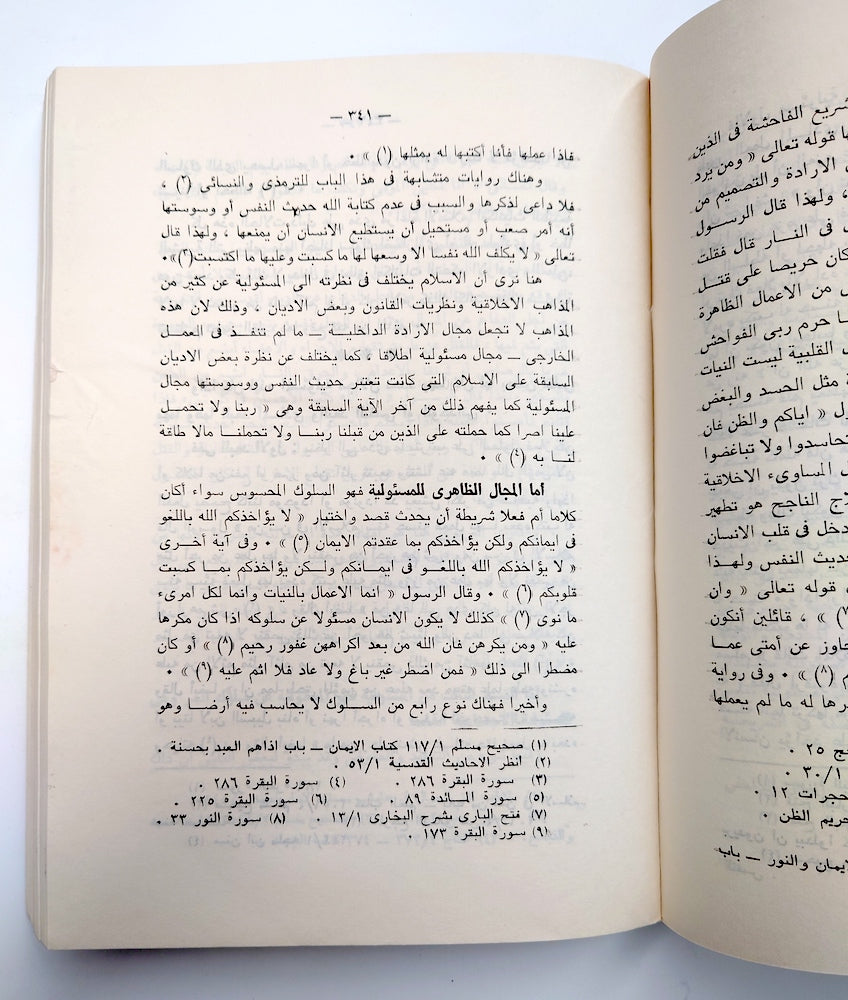 — ٣٤١ —
فاذا عملها فأنا أكتبها له بمثلها (١) » ٠
وهناك روايات متشابهة فى هذا الباب للترمذى والنسائى (٢) ،
فلا داعى لذكرها والسبب فى عدم كتابة الله حديث النفس أو وسوستها
أنه أمر صعب أو مستحيل أن يستطيع الانسان أن يمنعها ، ولهذا قال
تعالى « لا يكلف الله نفسا الا وسعها لها ما كسبت وعليها ما اكتسبت(٣)»٠
هنا نرى أن الاسلام يختلف فى نظرته الى المسئولية عن كثير من
المذاهب الاخلاقية ونظريات القانون وبعض الاديان ، وذلك لان هذه
المذاهب لا تجعل مجال الارادة الداخلية — ما لم تنفذ فى العمل
الخارجى — مجال مسئولية اطلاقا ، كما يختلف عن نظرة بعض الاديان
السابقة على الاسلام التى كانت تعتبر حديث النفس ووسوستها مجال
المسئولية كما يفهم ذلك من آخر الآية السابقة وهى « ربنا ولا تحمل
علينا اصرا كما حملته على الذين من قبلنا ربنا ولا تحملنا مالا طاقة
لنا به (٤) » ٠
أما المجال الظاهرى للمسئولية فهو السلوك المحسوس سواء أكان
كلاما أم فعلا شريطة أن يحدث قصد واختيار « لا يؤاخذكم الله باللغو
فى ايمانكم ولكن يؤاخذكم بما عقدتم الايمان (٥) » ٠ وفى آية أخرى
« لا يؤاخذكم الله باللغو فى ايمانكم ولكن يؤاخذكم بما كسبت
قلوبكم (٦) » ٠ وقال الرسول « انما الاعمال بالنيات وانما لكل امرىء
ما نوى (٧) » كذلك لا يكون الانسان مسئولا عن سلوكه اذا كان مكرها
عليه « ومن يكرهن فان الله من بعد اكراههن غفور رحيم (٨) » أو كان
مضطرا الى ذلك « فمن اضطر غير باغ ولا عاد فلا اثم عليه (٩) » ٠
وأخيرا فهناك نوع رابع من السلوك لا يحاسب فيه أرضا وهو
(١) صحيح مسلم ١١٧/١ كتاب الايمان — باب اذاهم العبد بحسنة ٠
(٢) انظر الاحاديث القدسية ٥٣/١ ٠
(٣) سورة البقرة ٢٨٦ ٠ (٤) سورة البقرة ٢٨٦ ٠
(٥) سورة المائدة ٨٩ ٠ (٦) سورة البقرة ٢٢٥ ٠
(٧) فتح البارى بشرح البخارى ١٣/١ ٠ (٨) سورة النور ٣٣ ٠
(٩) سورة البقرة ١٧٣ ٠
شريع الفاحشة فى الذين
قوله تعالى « ومن يرد
الارادة والتصميم من
، ولهذا قال الرسول
فى النار قال فقلت
كان حريصا على قتل
من الاعمال الظاهرة
حرم ربى الفواحش
القلبية ليست النيات
مثل الحسد والبغض
« اياكم والظن فان
تحاسدوا ولا تباغضوا
المساوىء الاخلاقية
الناجح هو تطهير
دخل فى قلب الانسان
حديث النفس ولهذا
قوله تعالى « وان
» ، قائلين أنكون
جاوز عن أمتى عما
(٨) » ٠ وفى رواية
له ما لم يعملها
٢٥ ٠
٣٠/١ ٠
حجرات ١٢ ٠
حريم الظن ٠
والنور — باب